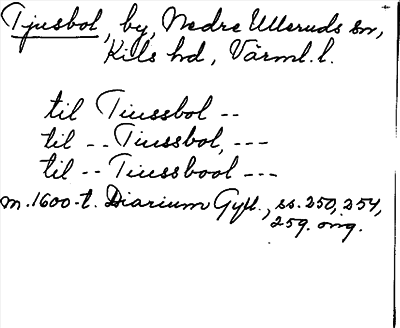 Tjusbol, by, Nedre Ulleruds sn,
Kils hd, Värml. l.
til Tiussbol --
til -- Tiussbol, ---
til -- Tiussbool ---
m. 1600-t. Diarium Gyll., ss. 250, 254,
259. orig.